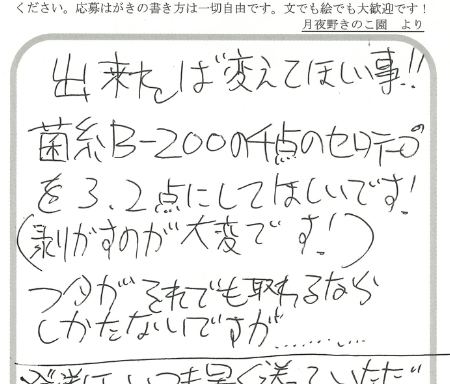 ください。応募はがきの書き方は一切自由です。文でも絵でも大歓迎です！
月夜野きのこ園　より
出来れば変えてほしい事!!
菌糸B-200の4点のセロテープ
を3、2点にしてほしいです!
(剥がすのが大変です!)
つ分がそれでも取れるなら
しかたないですが………
いつも早く送っていただ